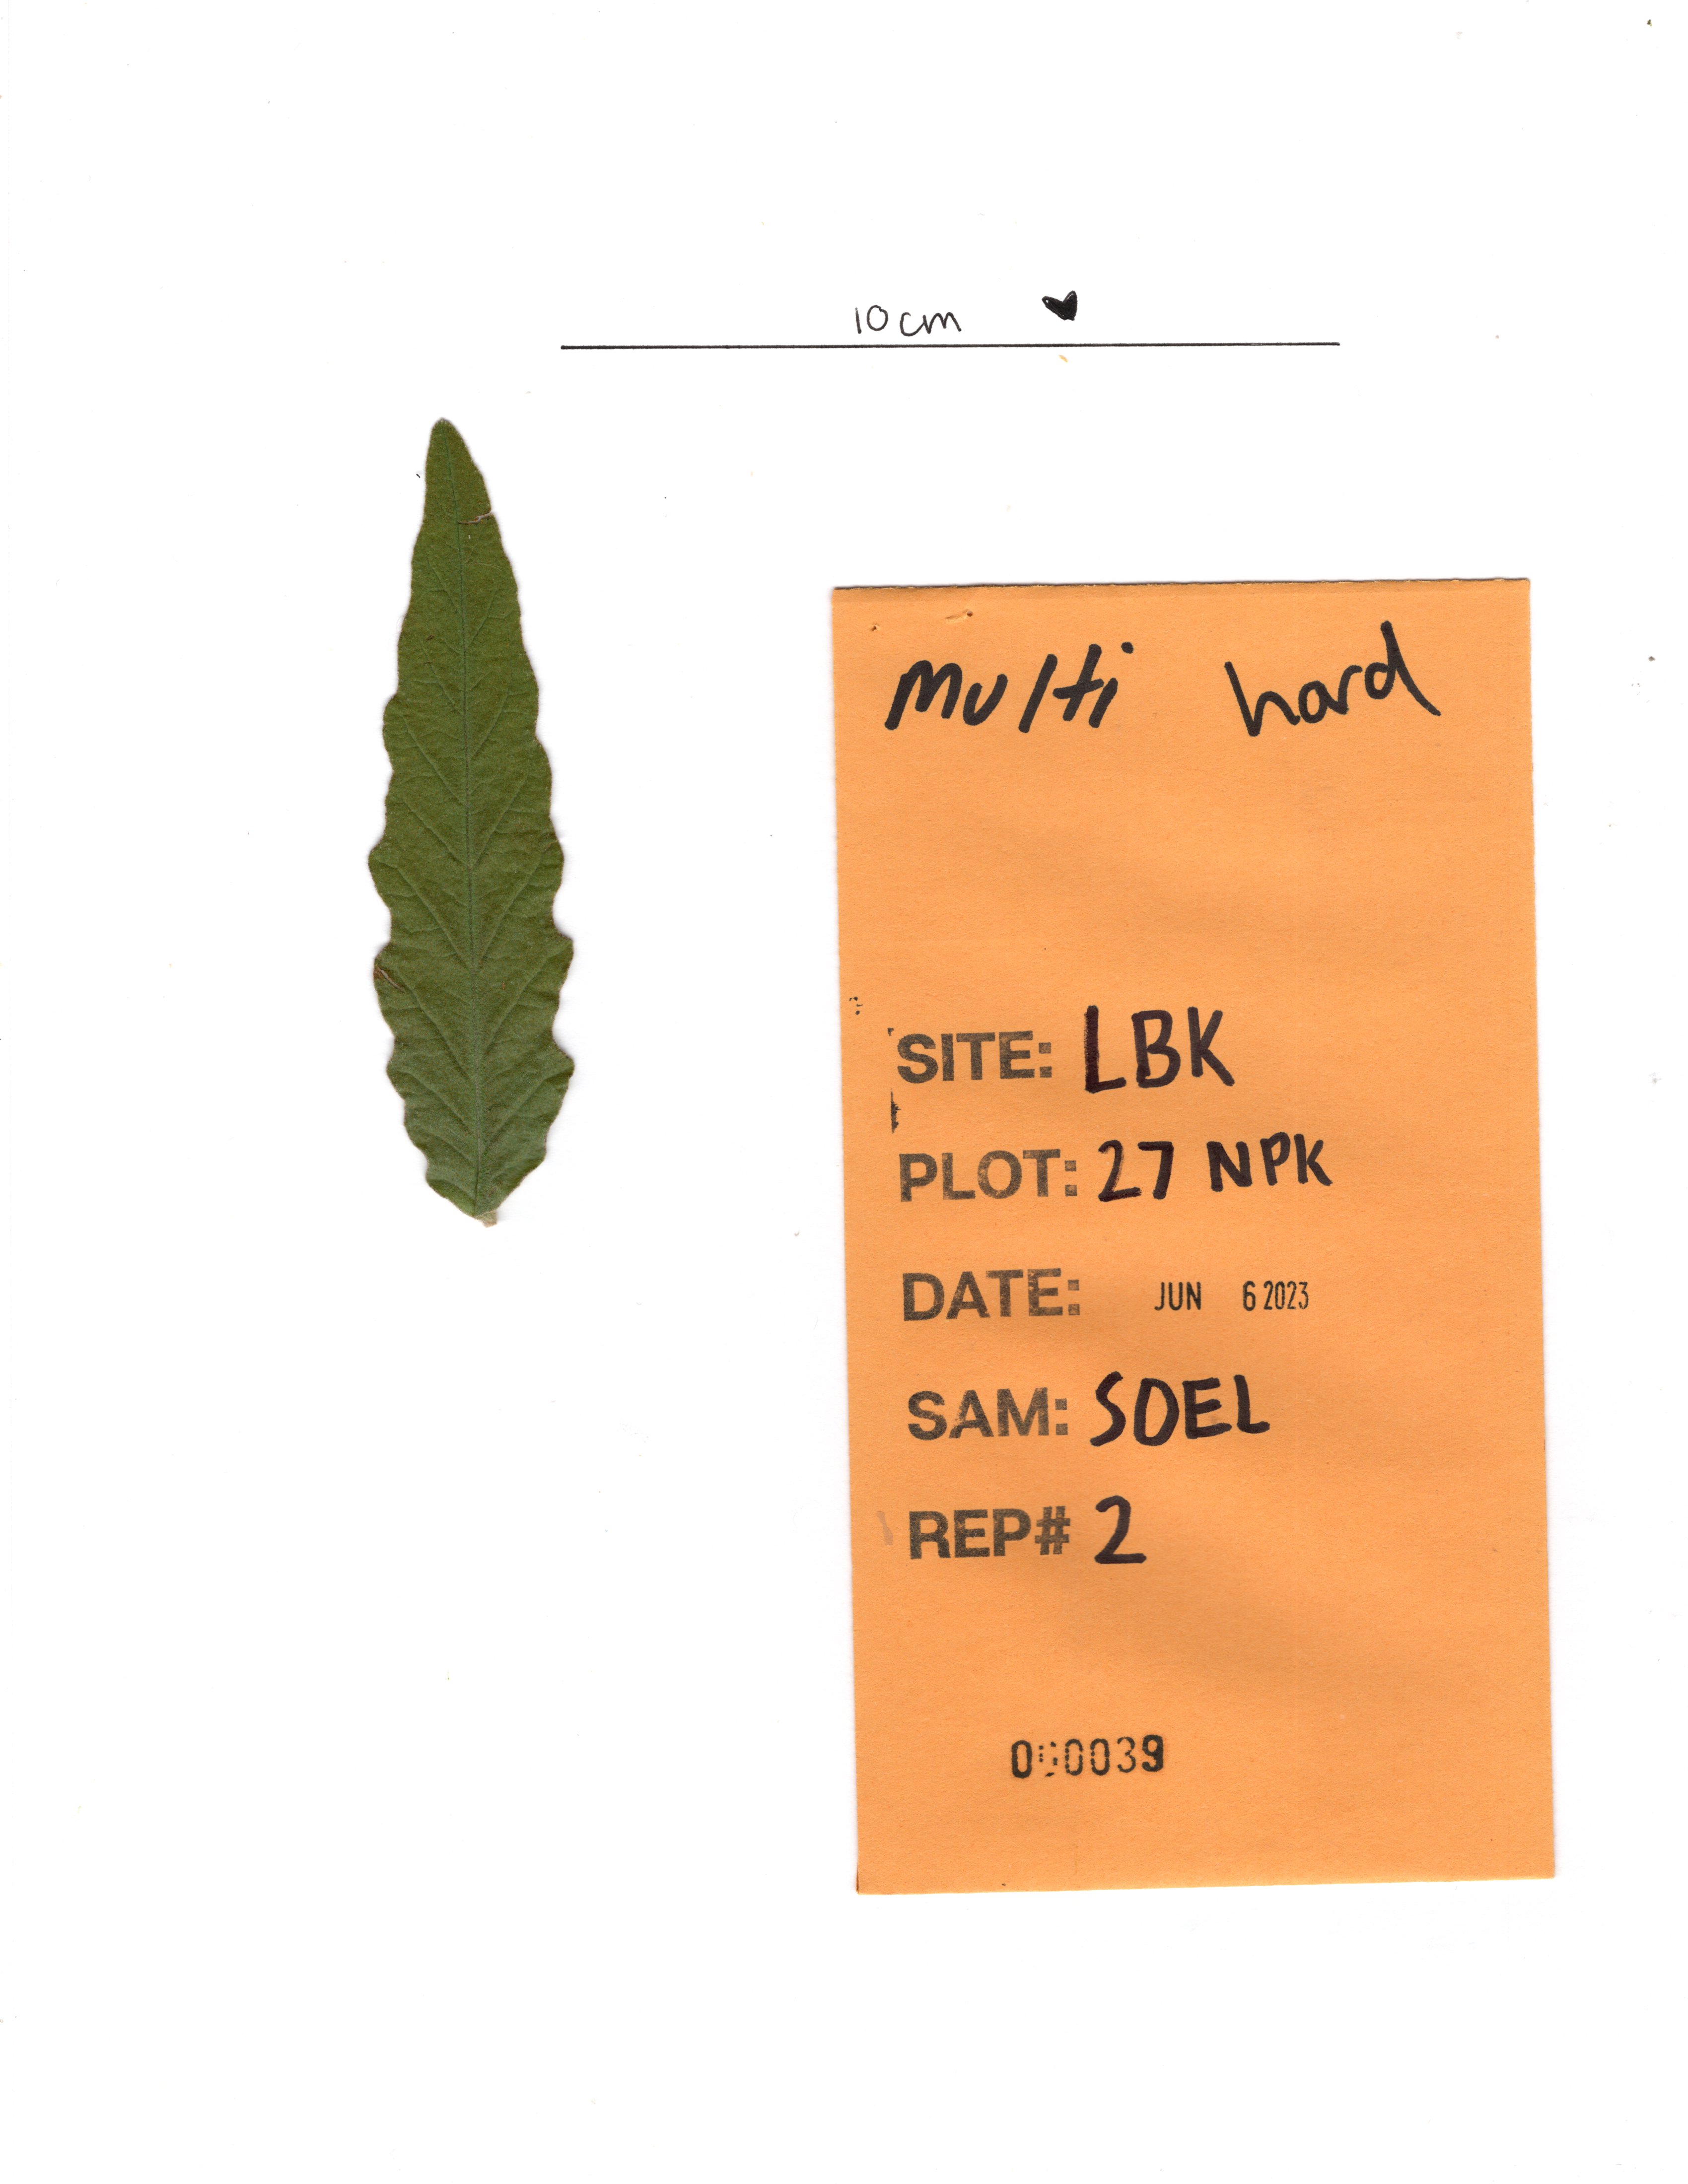 10cm
Multi hard
SITE: LBK
PLOT: 27 NPK
DATE: JUN 6 2023
SAM: SOEL
REP# 2
000039